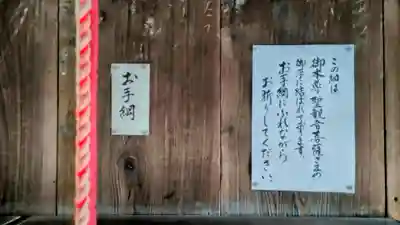 この綱は
御本尊聖観音菩薩さまの
御手に結ばれております
お手綱にふれながら
お祈りしてください。
お手綱